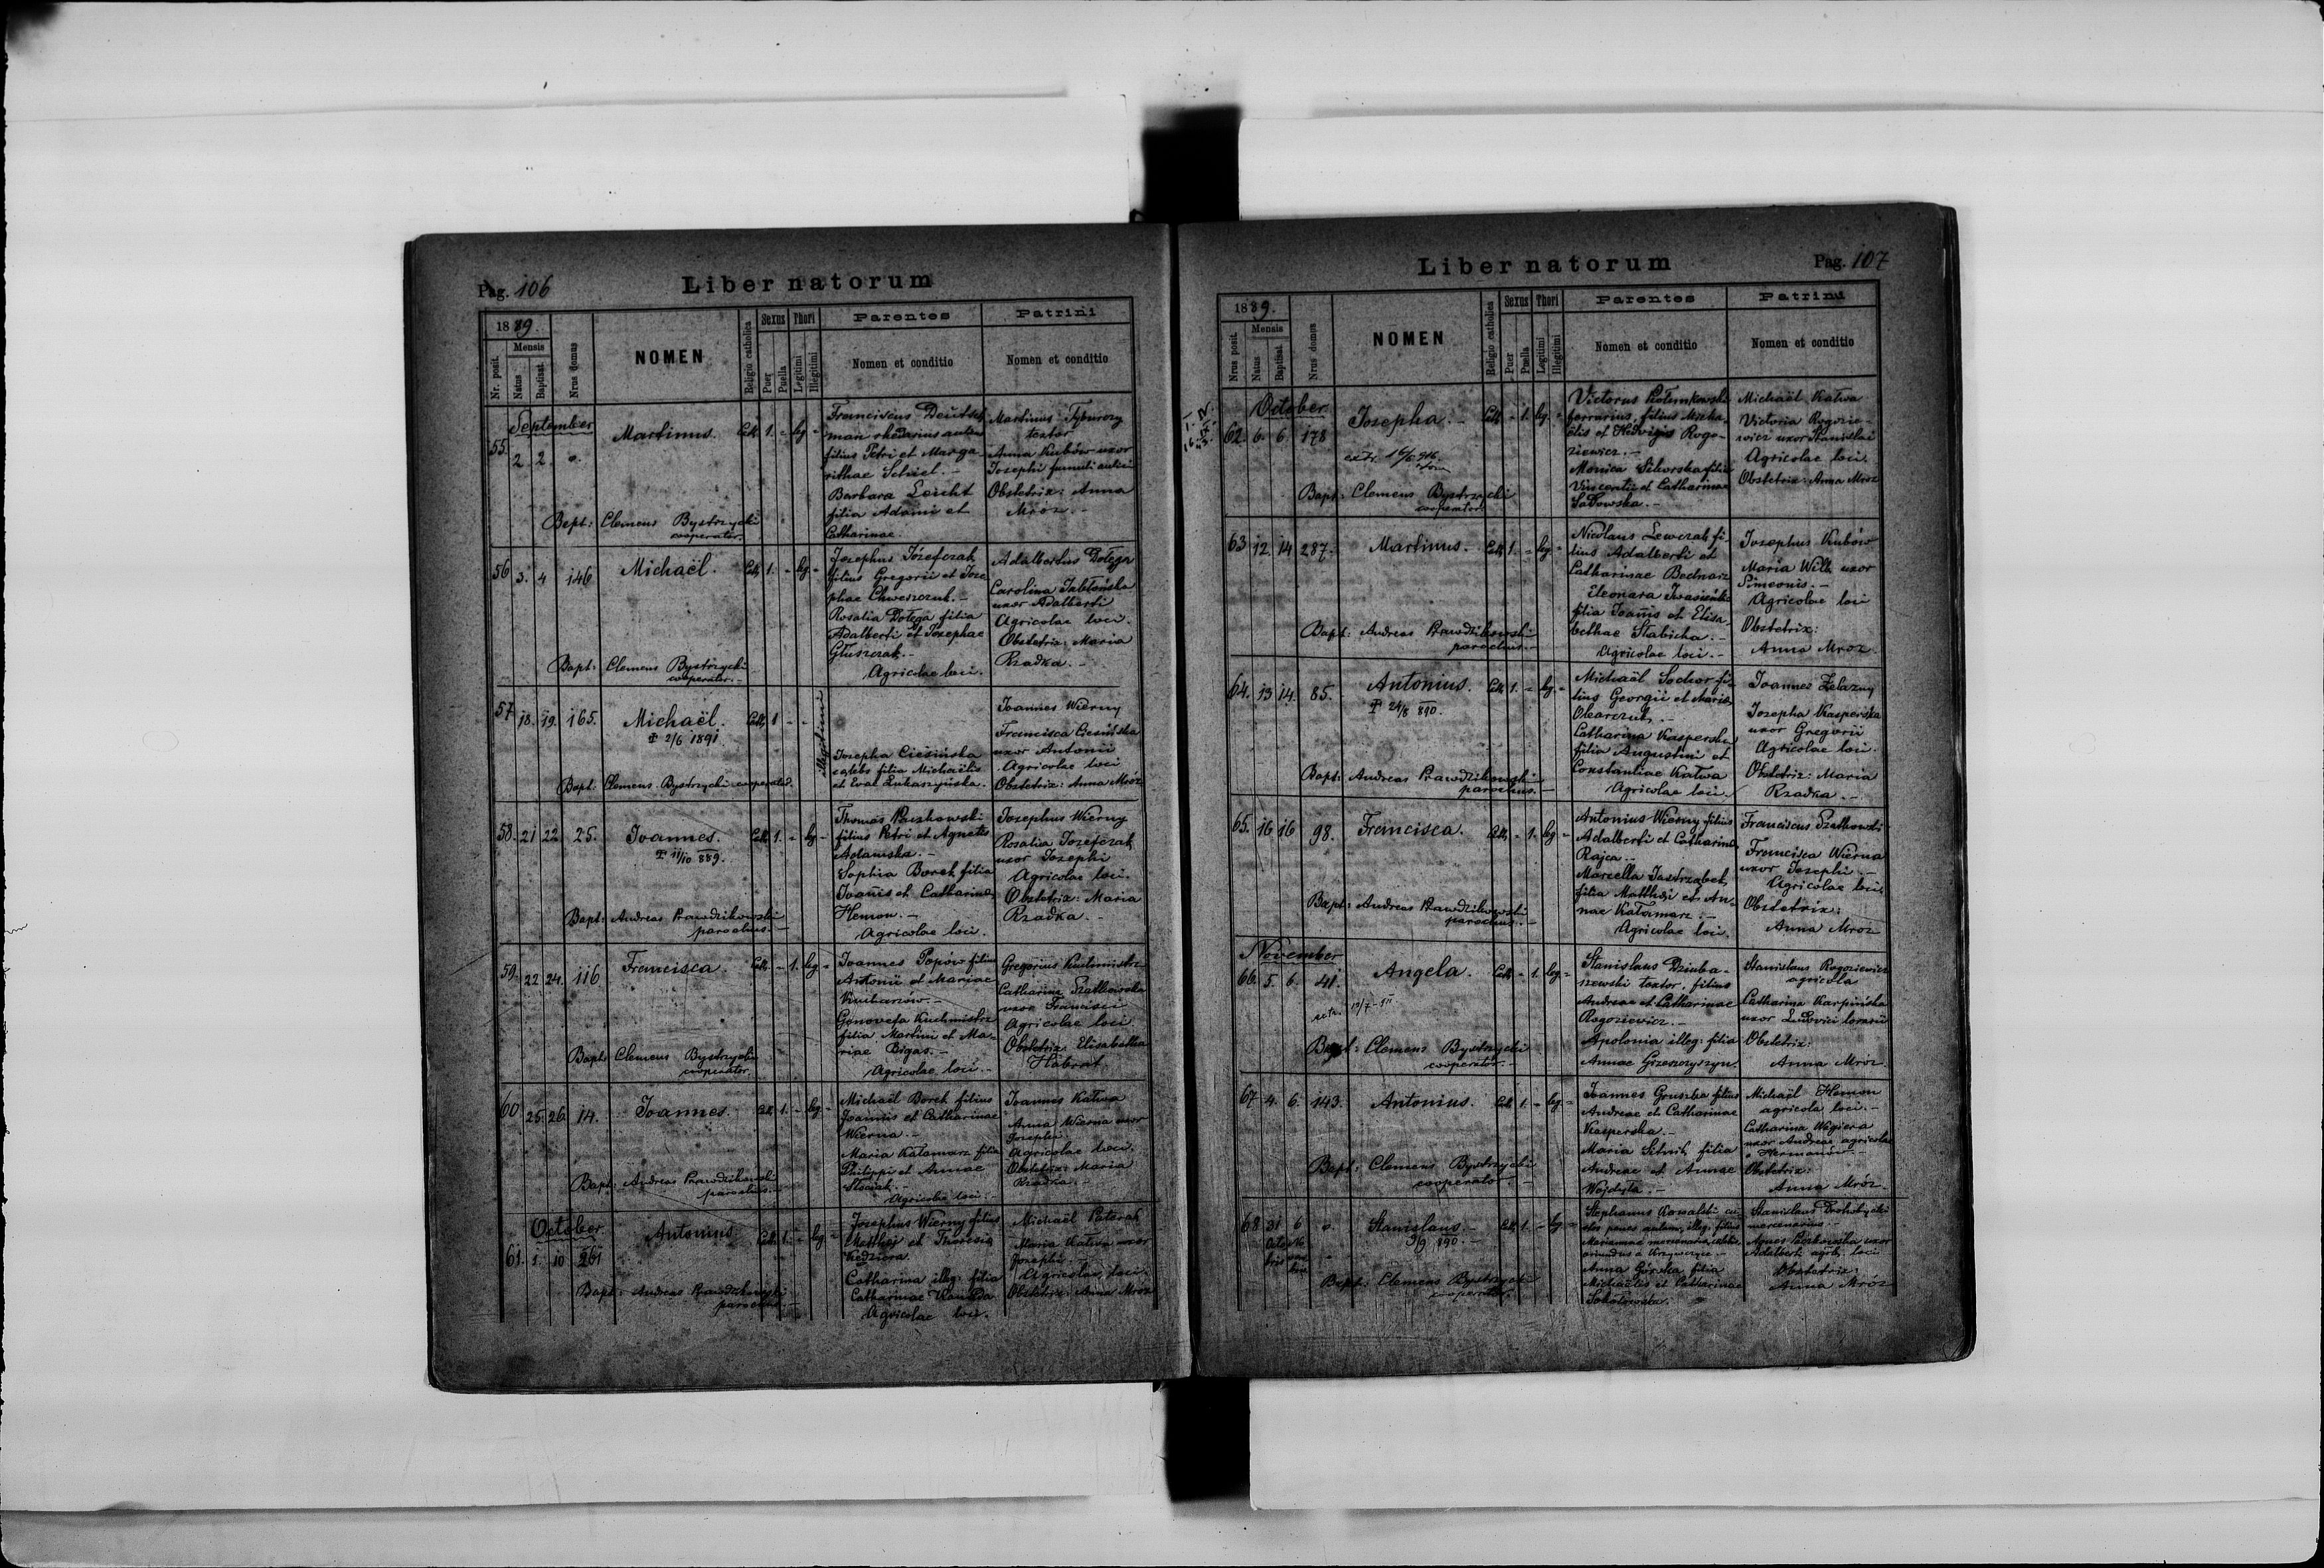 Pag. 106
Liber natorum
1889.
Nr. posit.
Mensis
Natus
Baptisat.
Nrus domus
NOMEN
Religio catholica
Sexus
Puer
Puella
Thori
Legitimi
Illegitimi
Parentes
Nomen et conditio
Patrini
Nomen et conditio
September
55. 2. 2.
Martinus.
Cath. 1. - leg -
Franciscus Deutsch
man rhedarius
filius Petri et Marga-
rithae Schiel.-
Barbara Leicht
filia Adami et
Catharinae.
Martinus Tyburczy
textor
Anna Kubów uxor
Josephi famuli
Obstetrix: Anna
Mróz.-
Bapt: Clemens Bystrzycki
cooperator.
56 3. 4 146
Michaël.
Cath. 1. - leg -
Josephus Józefczak
filius Gregorii et Jose
phae Chwesczuk.-
Rosalia Dołęga filia
Adalberti et Josephae
Głuszczak.-
Agricolae loci.
Adalbertus Dołęga
Carolina Jabłońska
uxor Adalberti
Agricolae loci.
Obstetrix: Maria
Rzadka.-
Bapt: Clemens Bystrzycki
cooperator.-
57 18. 19. 165.
Michaël.
2/6 1891
Cath. 1 - -
illegitimi
Josepha Ciesińska
caelebs filia Michaëlis
et Evae Łukaszyńska.
Joannes Wierny
Francisca Ciesińska
uxor Antonii
Agricolae loci
Obstetrix: Anna Mróz
Bapt: Clemens Bystrzycki cooperator.
58. 21 22 25.
Joannes.
11/10 889.
Cath. 1. - leg -
Thomas Ruszkowski
filius Petri et Agnetis
Adamska.-
Sophia Borek filia
Joannis et Catharinae
Hemon.-
Agricolae loci.
Josephus Wierny
Rosalia Józefczak
uxor Josephi
Agricolae loci.
Obstetrix: Maria
Rzadka.-
Bapt: Andreas Prawdzikowski
parochus.-
59. 22 24. 116
Francisca.
Cath. - 1. leg -
Joannes Popów filius
Antonii et Mariae
Kucharzów.-
Genovefa Kuchmistrz
filia Martini et Ma-
riae Bigas.-
Agricolae loci.-
Gregorius Kuchmistrz
Catharina Szatkowska
uxor Francisci
Agricolae loci
Obstetrix: Elisabetha
Bapt: Clemens Bystrzycki
cooperator.
60 25. 26. 14.
Joannes.
Cath. 1. - leg -
Michaël Borek filius
Joannis et Catharinae
Wierna.-
Maria Kałamarz filia
Philippi et Annae
Agricolae loci.-
Joannes Kałwa
Anna Wierna uxor
Josephi
Agricolae loci.
Obstetrix: Maria
Rzadka.-
Bapt: Andreas Prawdzikowski
parochus.-
October.
61. 1. 10 261
Antonius
Cath. 1. - leg -
Josephus Wierny filius
et Theresia
Kędziora
Catharina illeg: filia
Catharinae
Agricolae loci.
Michaël Paterak
Maria Kałwa uxor
Josephi.-
Agricolae loci.
Obstetrix: Anna Mróz
Bapt: Andreas Prawdzikowski
parochus.-
Liber natorum
Pag. 107
1889.
Nrus posit.
Mensis
Natus
Baptisat.
Nrus domus
NOMEN
Religio catholica
Sexus
Puer
Puella
Thori
Legitimi
Illegitimi
Parentes
Nomen et conditio
Patrini
Nomen et conditio
October
62. 6. 6. 178
Josepha.-
Cath. - 1. leg. -
Victorus
ferrarius, filius Micha-
ëlis et Hedvigis Rogo-
ziewicz.-
Monica Sikorska filia
Vincentii et Catharinae
Sadowska.-
Michaël Kałwa
Victoria Rogozie-
wicz uxor Stanislai
Agricolae loci.
Obstetrix: Anna Mróz
Bapt: Clemens Bystrzycki
cooperator.
63 12. 14 287.
Martinus.
Cath. 1. - leg -
Nicolaus Lewczak fi-
lius Adalberti et
Catharinae Bednarz
Eleonara
filia Joannis et Elisa-
bethae Stabicka.-
Agricolae loci.-
Josephus Kubów
Maria Wilk uxor
Simeonis.-
Agricolae loci
Obstetrix:
Anna Mróz.
Bapt: Andreas Prawdzikowski
parochus.-
64. 13 14. 85.
Antonius.
24/8 890.
Cath. 1. - leg. -
Michaël Sochor fi-
lius Georgii et Mariae
Olearczuk.-
Catharina Kasperska
filia Augustini et
Constantiae Kałwa
Agricolae loci.
Joannes Żelazny
Josepha Kasperska
uxor Gregorii
Agricolae loci.
Obstetrix: Maria
Rzadka.-
Bapt: Andreas Prawdzikowski
parochus.-
65. 16 16 98.
Francisca.
Cath. - 1. leg -
Antonius Wierny filius
Adalberti et Catharinae
Rajca.-
Marcella Jastrzabek
filia Mathaei et An-
nae Kałamarz.-
Agricolae loci.
Franciscus Szatkowski
Francisca Wierna
uxor Josephi.-
Agricolae loci.
Obstetrix:
Anna Mróz
Bapt: Andreas Prawdzikowski
parochus.-
November
66. 5. 6. 41.
Angela.
Cath. - 1. leg. -
Stanislaus Dziuba-
szewski textor, filius
Andreae et Catharinae
Rogoziewicz.-
Apolonia illeg: filia
Annae Grzeszczyszyn.
Stanislaus Rogoziewicz
agricola
Catharina Karpińska
uxor Ludovici
Obstetrix:
Anna Mróz
Bapt: Clemens Bystrzycki
cooperator.-
67 4. 6. 143.
Antonius.
Cath. 1. - leg -
Joannes Gruszka filius
Andreae et Catharinae
Kasperska.-
Maria Sitnik filia
Andreae et Annae
Wojdyła.-
Michaël Hemon
agricola loci.-
Catharina Węgiera
uxor Andreae agricolae
Obstetrix:
Anna Mróz.
Bapt: Clemens Bystrzycki
cooperator.-
68 31 6
Stanislaus.-
3/9 890.-
Cath. 1. - leg -
Stephanus Kowalski
illeg. filius
Mariannae
oriundus e
Anna Górska filia
Michaëlis et Catharinae
Sokołowska.
Stanislaus
mercenarius.-
Agnes uxor
Adalberti agric. loci
Obstetrix:
Anna Mróz
Bapt: Clemens Bystrzycki
cooperator.